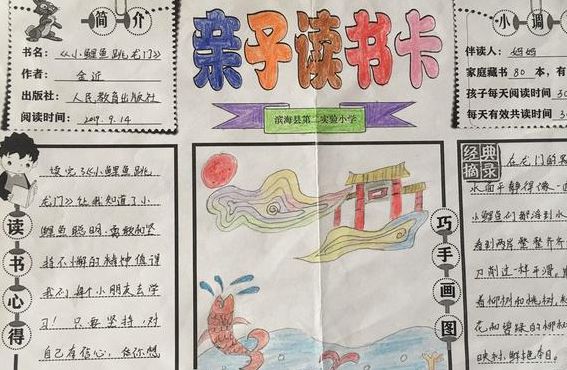 简介
书名：《小鲤鱼跳龙门》
作者：金近
出版社：人民教育出版社
阅读时间：2019.9.14
亲子读书卡
滨海县第二实验小学
小调
伴读人：妈妈
家庭藏书 80 本，有
孩子每天阅读时间 30
每天有效共读时间 30
读书心得
读完了《小鲤鱼跳
龙门》让我知道了小
鲤鱼聪明、勇敢和坚
持不懈的精神值得
我们每个小朋友去学
习！只要坚持，对
自己有信心，
巧手画图
经典摘录
在龙门的
水面平静得像一面
小鲤鱼们都游到水
看到两岸整整齐齐
刀削过一样平滑，
着柳树和桃树，
花和碧绿的柳
映衬，鲜艳夺目。